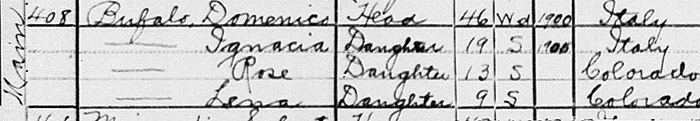 Main
408 Bufalo, Domenico Head 46 Wd 1900 Italy
— Ignacia Daughter 19 S 1900 Italy
— Rose Daughter 13 S Colorado
— Lena Daughter 9 S Colorado